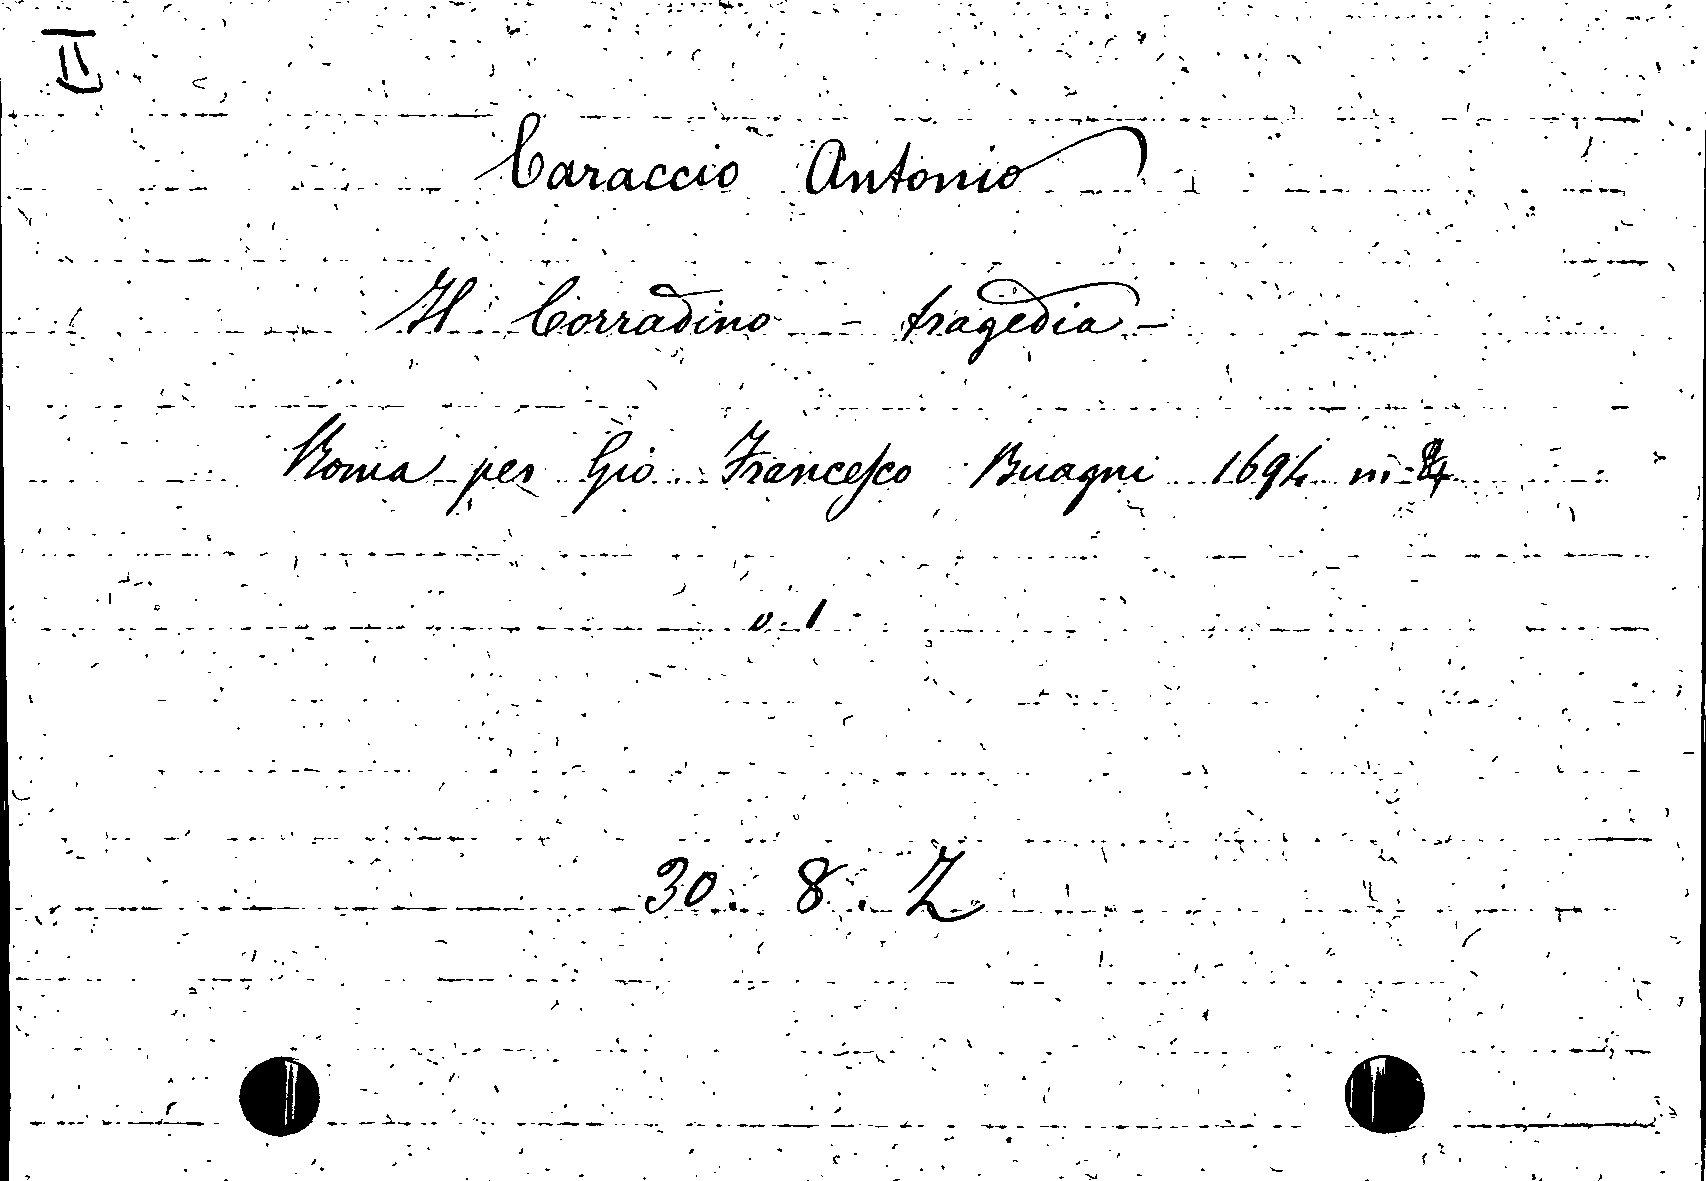 II
Caraccio Antonio
Il Corradino - tragedia -
Roma per Gio. Francesco Buagni 1694 in-4
v. 1
30. 8. Z